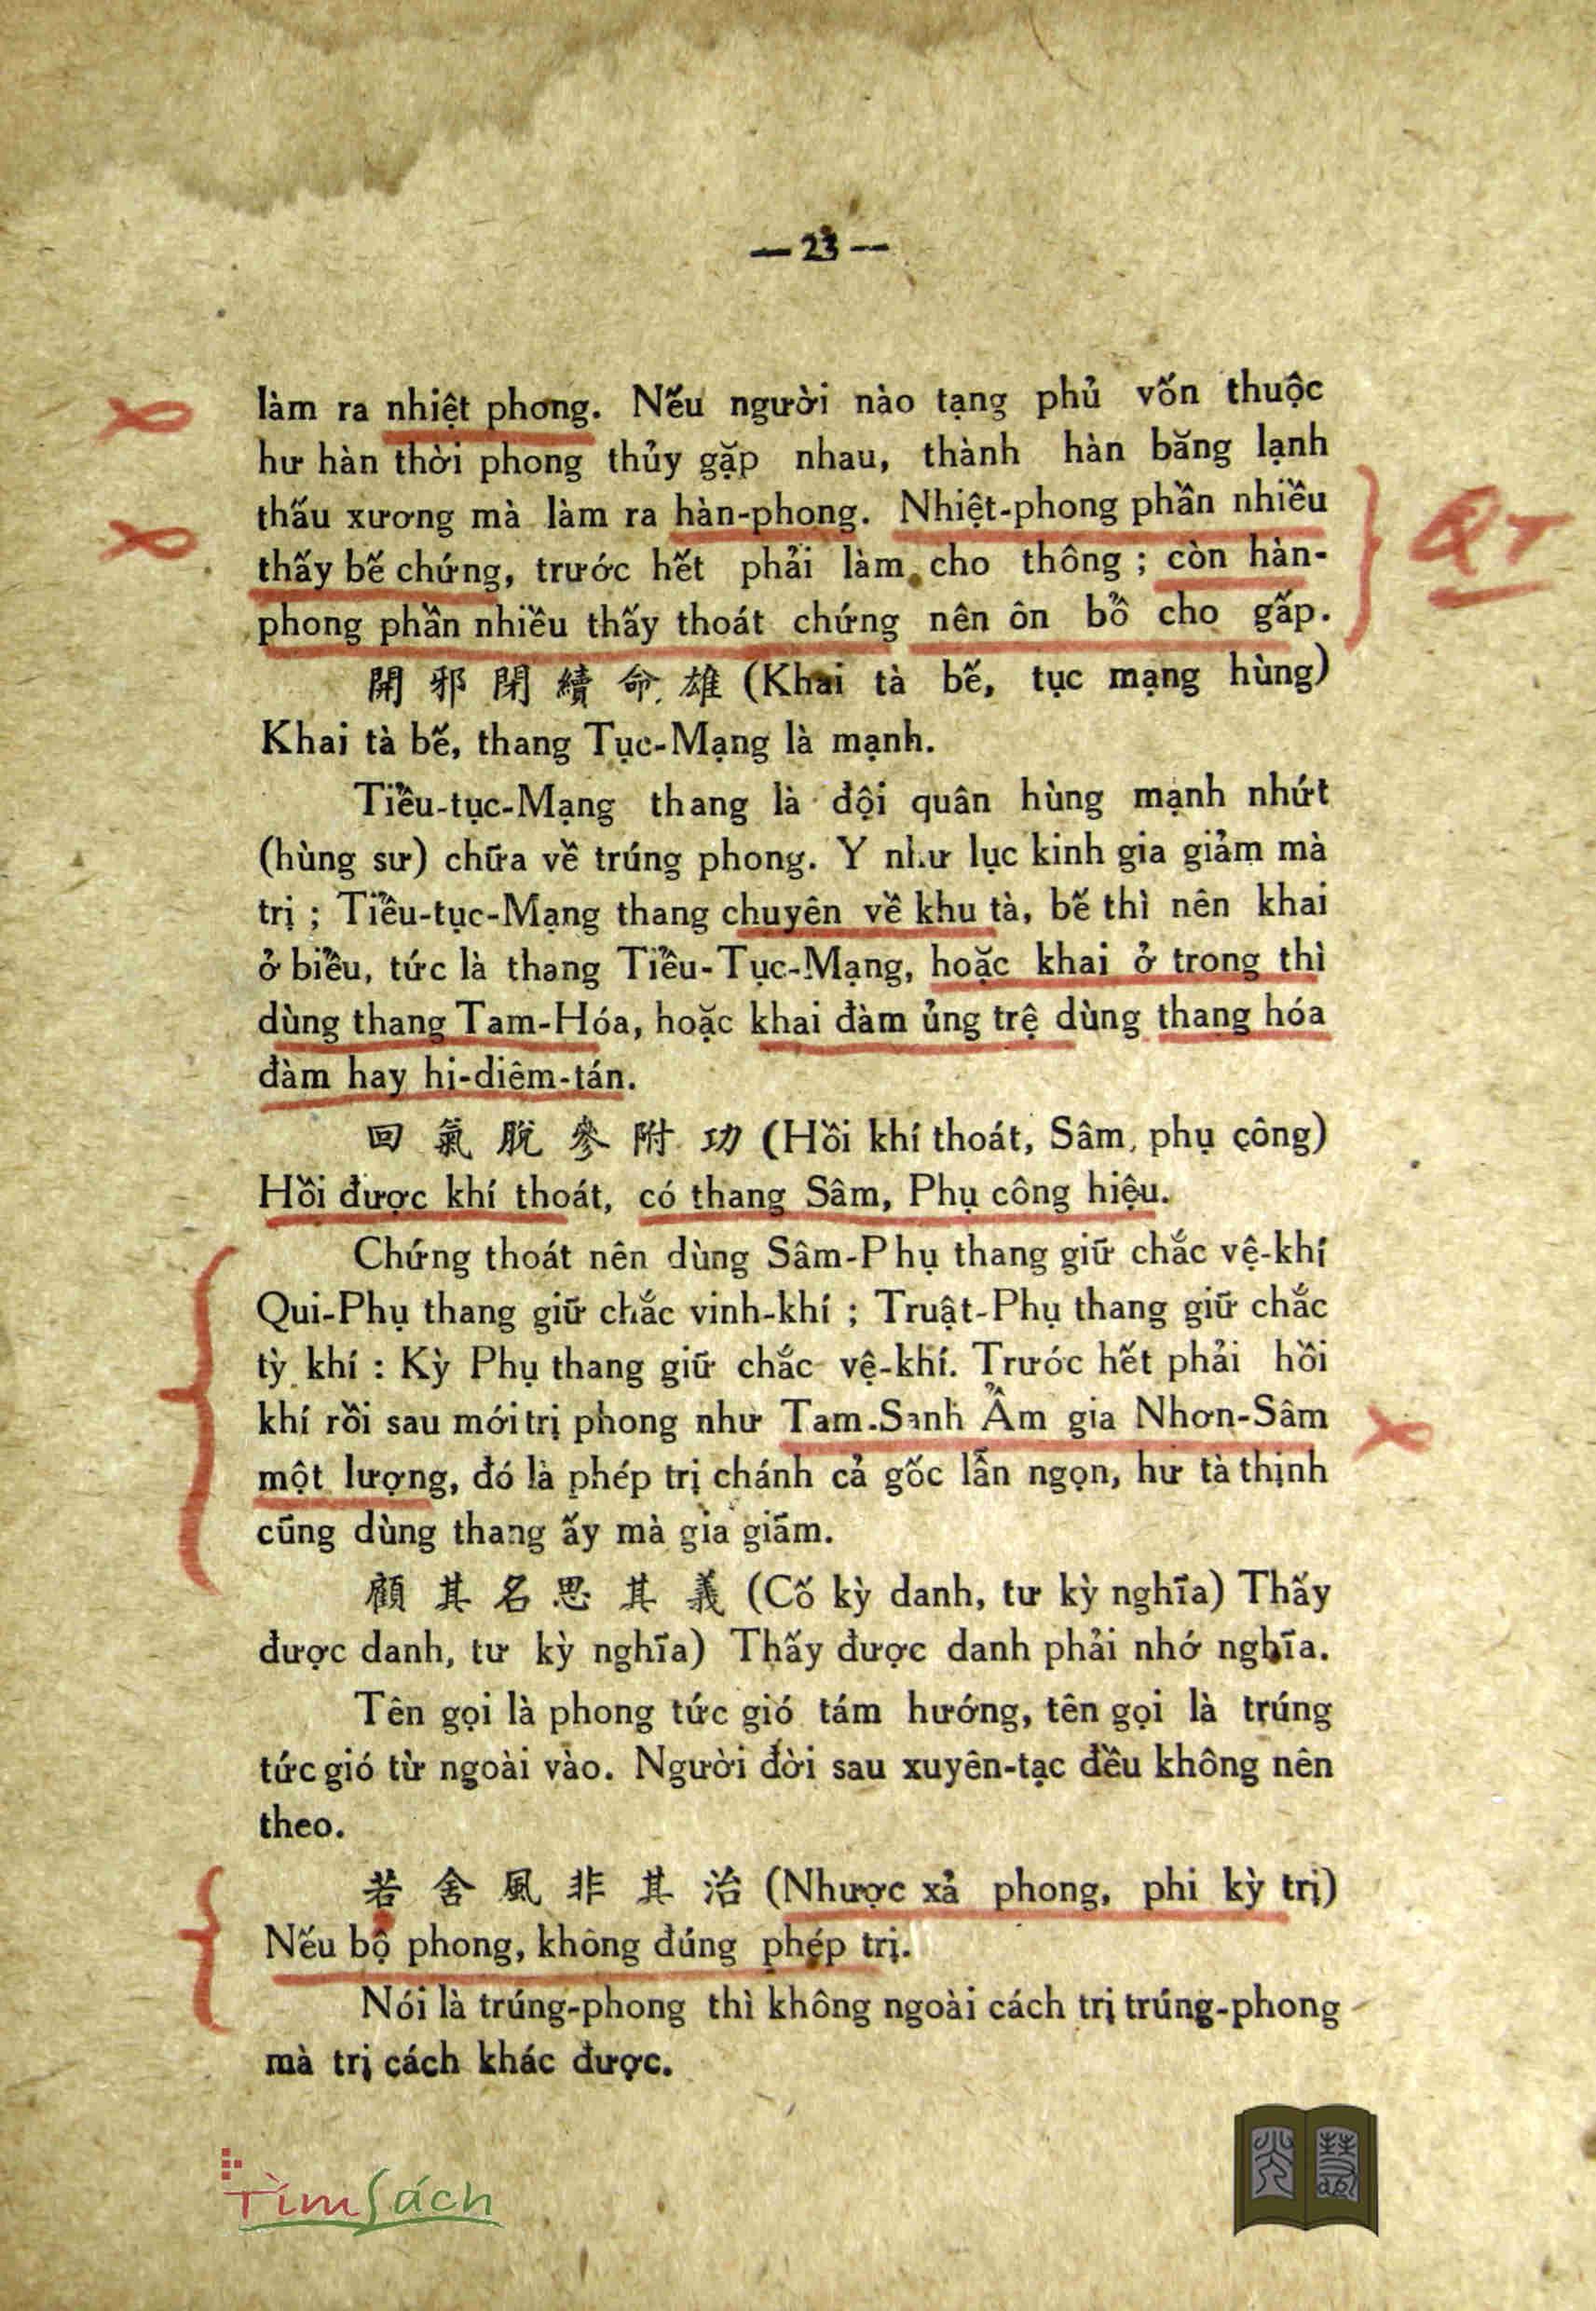 — 23 —
làm ra nhiệt phong. Nếu người nào tạng phủ vốn thuộc
hư hàn thời phong thủy gặp nhau, thành hàn băng lạnh
thấu xương mà làm ra hàn-phong. Nhiệt-phong phần nhiều
thấy bế chứng, trước hết phải làm cho thông ; còn hàn-
phong phần nhiều thấy thoát chứng nên ôn bổ cho gấp.
QT
開 邪 閉 續 命 雄 (Khai tà bế, tục mạng hùng)
Khai tà bế, thang Tục-Mạng là mạnh.
Tiểu-tục-Mạng thang là đội quân hùng mạnh nhứt
(hùng sư) chữa về trúng phong. Y như lục kinh gia giảm mà
trị ; Tiểu-tục-Mạng thang chuyên về khu tà, bế thì nên khai
ở biểu, tức là thang Tiểu-Tục-Mạng, hoặc khai ở trong thì
dùng thang Tam-Hóa, hoặc khai đàm ủng trệ dùng thang hóa
đàm hay hi-diêm-tán.
回 氣 脫 參 附 功 (Hồi khí thoát, Sâm, phụ công)
Hồi được khí thoát, có thang Sâm, Phụ công hiệu.
Chứng thoát nên dùng Sâm-Phụ thang giữ chắc vệ-khí
Qui-Phụ thang giữ chắc vinh-khí ; Truật-Phụ thang giữ chắc
tỳ khí : Kỳ Phụ thang giữ chắc vệ-khí. Trước hết phải hồi
khí rồi sau mới trị phong như Tam-Sanh Ẩm gia Nhơn-Sâm
một lượng, đó là phép trị chánh cả gốc lẫn ngọn, hư tà thịnh
cũng dùng thang ấy mà gia giãm.
顧 其 名 思 其 義 (Cố kỳ danh, tư kỳ nghĩa) Thấy
được danh, tư kỳ nghĩa) Thấy được danh phải nhớ nghĩa.
Tên gọi là phong tức gió tám hướng, tên gọi là trúng
tức gió từ ngoài vào. Người đời sau xuyên-tạc đều không nên
theo.
若 舍 風 非 其 治 (Nhược xả phong, phi kỳ trị)
Nếu bộ phong, không đúng phép trị.
Nói là trúng-phong thì không ngoài cách trị trúng-phong
mà trị cách khác được.
TìmSách